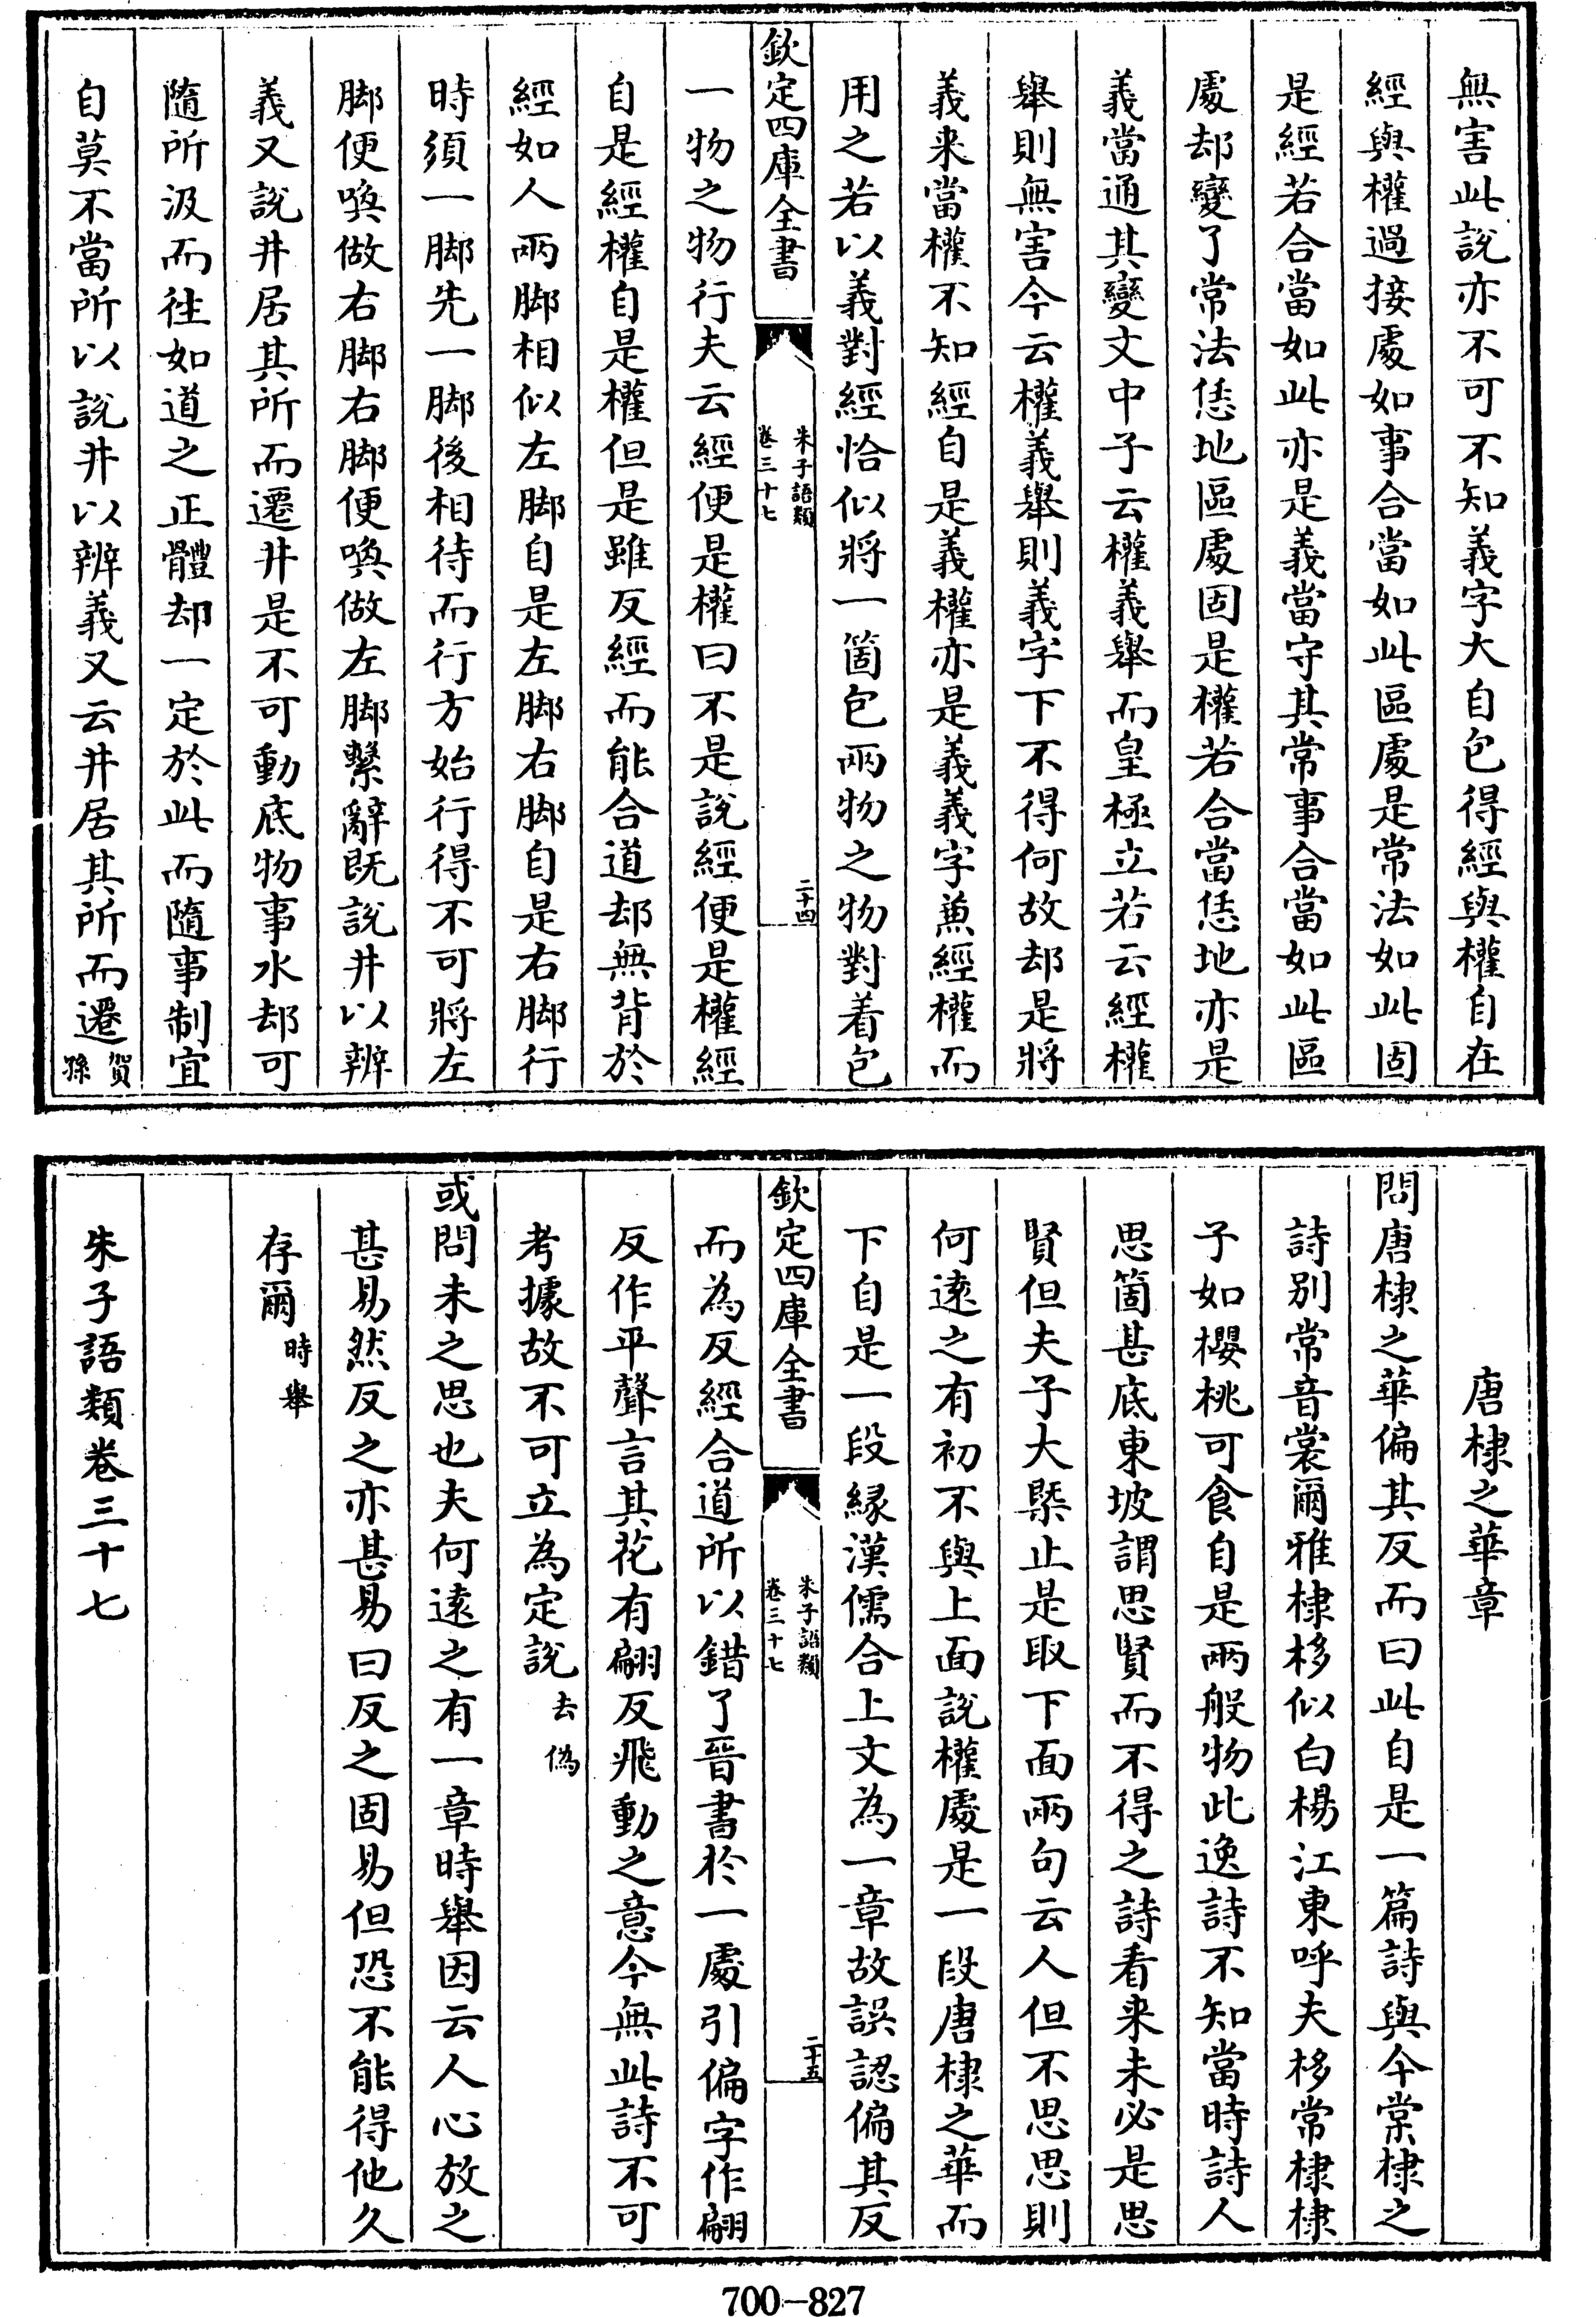 無害此説亦不可不知義字大自包得經與權自在
經與權過接處如事合當如此區處是常法如此固
是經若合當如此亦是義當守其常事合當如此區
處却變了常法恁地區處固是權若合當恁地亦是
義當通其變文中子云權義舉而皇極立若云經權
舉則無害今云權義舉則義字下不得何故却是將
義来當權不知經自是義權亦是義義字兼經權而
用之若以義對經恰似將一箇包兩物之物對着包
欽定四庫全書
朱子語類
卷三十七
二十四
一物之物行夫云經便是權曰不是說經便是權經
自是經權自是權但是雖反經而能合道却無背於
經如人兩脚相似左脚自是左脚右脚自是右脚行
時須一脚先一脚後相待而行方始行得不可將左
脚便喚做右脚右脚便喚做左脚繫辭既說井以辨
義又說井居其所而遷井是不可動底物事水却可
隨所汲而往如道之正體却一定於此而隨事制宜
自莫不當所以說井以辨義又云井居其所而遷賀孫
唐棣之華章
問唐棣之華偏其反而曰此自是一篇詩與今棠棣之
詩別常音裳爾雅棣栘似白楊江東呼夫栘常棣棣
子如櫻桃可食自是兩般物此逸詩不知當時詩人
思箇甚底東坡謂思賢而不得之詩看来未必是思
賢但夫子大槩止是取下面兩句云人但不思思則
何遠之有初不與上面說權處是一段唐棣之華而
下自是一段縁漢儒合上文為一章故誤認偏其反
欽定四庫全書
朱子語類
卷三十七
二十五
而為反經合道所以錯了晉書於一處引偏字作翩
反作平聲言其花有翩反飛動之意今無此詩不可
考據故不可立為定說去偽
或問未之思也夫何遠之有一章時舉因云人心放之
甚易然反之亦甚易曰反之固易但恐不能得他久
存爾時舉
朱子語類卷三十七
700-827